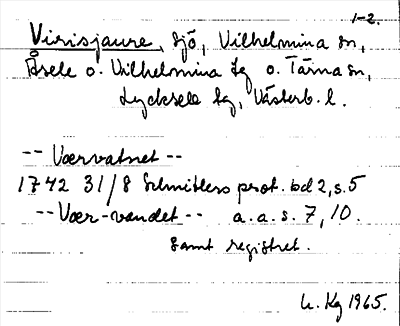 1-2.
Virisjaure, sjö, Vilhelmina sn,
Åsele o. Vilhelmina lg o. Tärna sn,
Lycksele lg, Västerb. l.
-- Værvatnet --
1742 31/8 Schnitlers prot. bd 2, s. 5
-- Vær-vandet -- a.a. s. 7, 10.
samt registret.
U. Kg 1965.